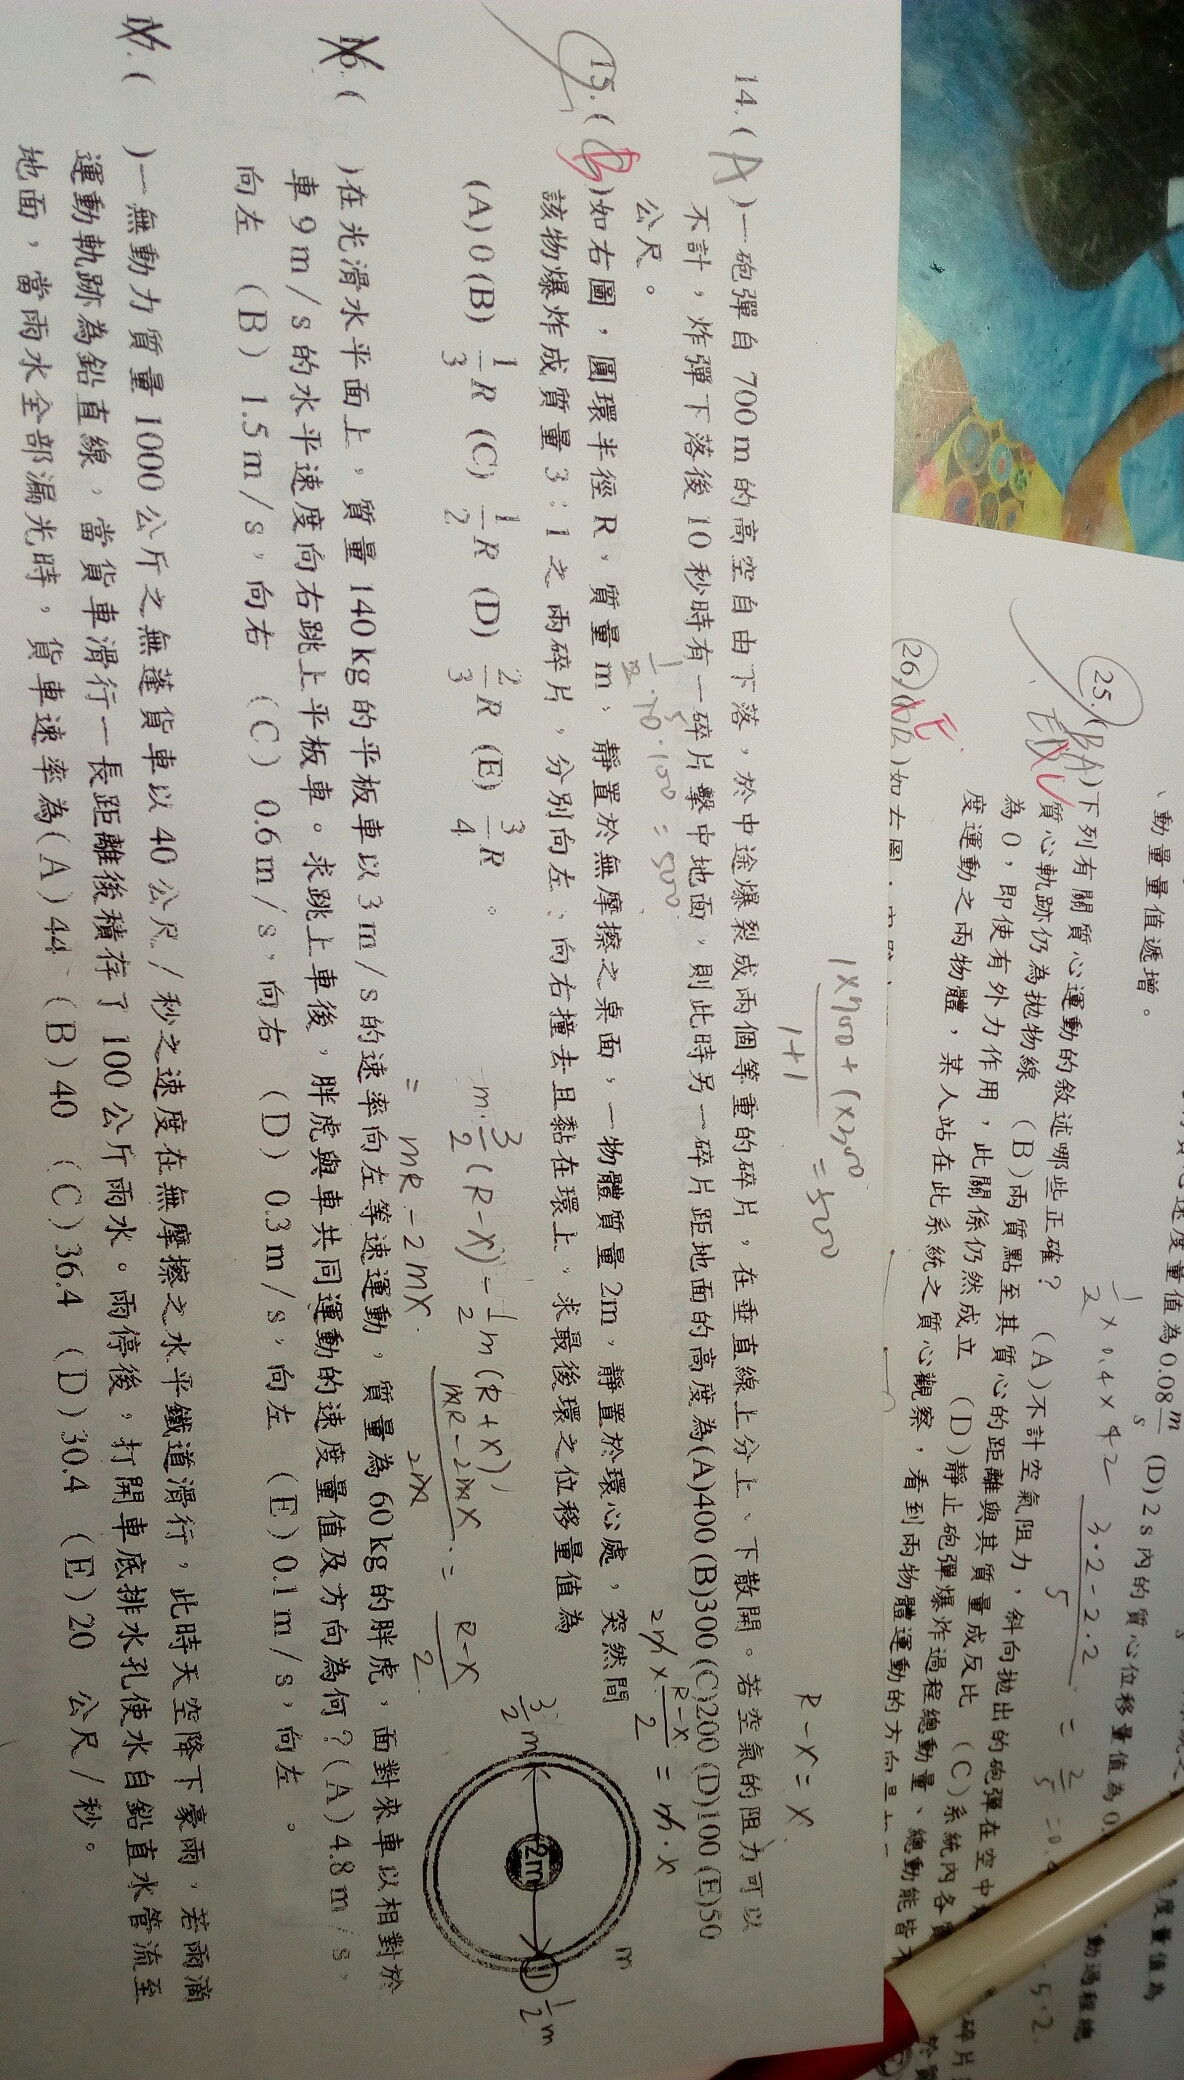 動量量值遞增。
速度量值為0.08 m/s (D)2s內的質心位移量值為
1/2 × 0.4 × 42
3·2-2·2 / 5 = 2/5 = 0.4
25.(BA)下列有關質心運動的敘述哪些正確? (A)不計空氣阻力,斜向拋出的砲彈在空中
質心軌跡仍為拋物線 (B)兩質點至其質心的距離與其質量成反比 (C)系統內各
為0,即使有外力作用,此關係仍然成立 (D)靜止砲彈爆炸過程總動量、總動能皆
度運動之兩物體,某人站在此系統之質心觀察,看到兩物體運動的方向
26.( )如右圖
1×700+1×300 / 1+1 = 500
R-x=x
14.(A)一砲彈自700m的高空自由下落,於中途爆裂成兩個等重的碎片,在垂直線上分上、下散開。若空氣的阻力可以
不計,炸彈下落後10秒時有一碎片擊中地面,則此時另一碎片距地面的高度為(A)400(B)300(C)200(D)100(E)50
公尺。
1/2·10·100=500
2m×(R-x)/2=m·x
15.(B)如右圖,圓環半徑R,質量m,靜置於無摩擦之桌面,一物體質量2m,靜置於環心處,突然間
該物爆炸成質量3:1之兩碎片,分別向左、向右撞去且黏在環上,求最後環之位移量值為
(A)0(B) 1/3 R (C) 1/2 R (D) 2/3 R (E) 3/4 R 。
m·3/2(R-x)-1/2m(R+x)
= mR-2mx
mR-2mx / 2m = R-x / 2
3/2 m
2m
m
1/2 m
16.( )在光滑水平面上,質量140kg的平板車以3m/s的速率向左等速運動,質量為60kg的胖虎,面對來車以相對於
車9m/s的水平速度向右跳上平板車。求跳上車後,胖虎與車共同運動的速度量值及方向為何?(A)4.8m/s,
向左 (B)1.5m/s,向右 (C)0.6m/s,向右 (D)0.3m/s,向左 (E)0.1m/s,向左 。
17.( )一無動力質量1000公斤之無蓬貨車以40公尺/秒之速度在無摩擦之水平鐵道滑行,此時天空降下豪雨,若雨滴
運動軌跡為鉛直線,當貨車滑行一長距離後積存了100公斤雨水。雨停後,打開車底排水孔使水自鉛直水管流至
地面,當雨水全部漏光時,貨車速率為(A)44 (B)40 (C)36.4 (D)30.4 (E)20 公尺/秒。